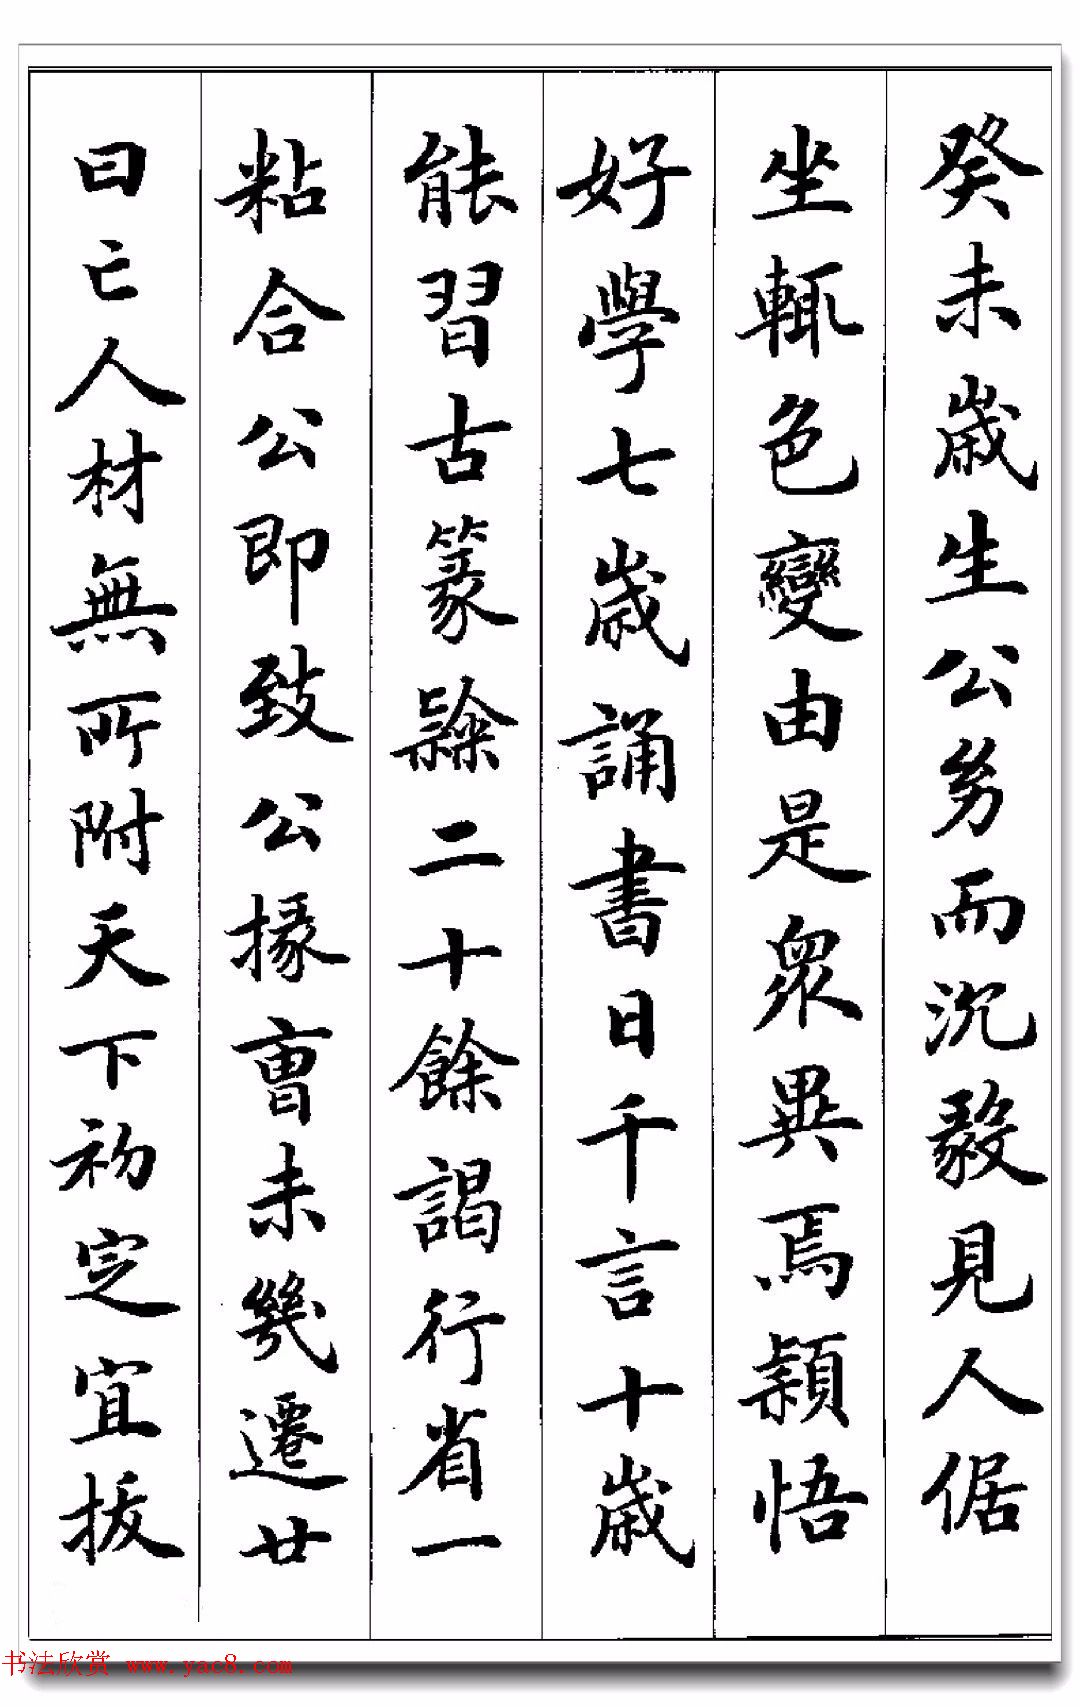 癸未歲生公㓜而沉毅見人倨
坐輒色變由是衆異焉穎悟
好學七歲誦書日千言十歲
能習古篆隸二十餘謁行省一
粘合公即致公掾曹未幾遷廿
曰亡人材無所附天下初定宜拔
书法欣赏 www.yac8.com